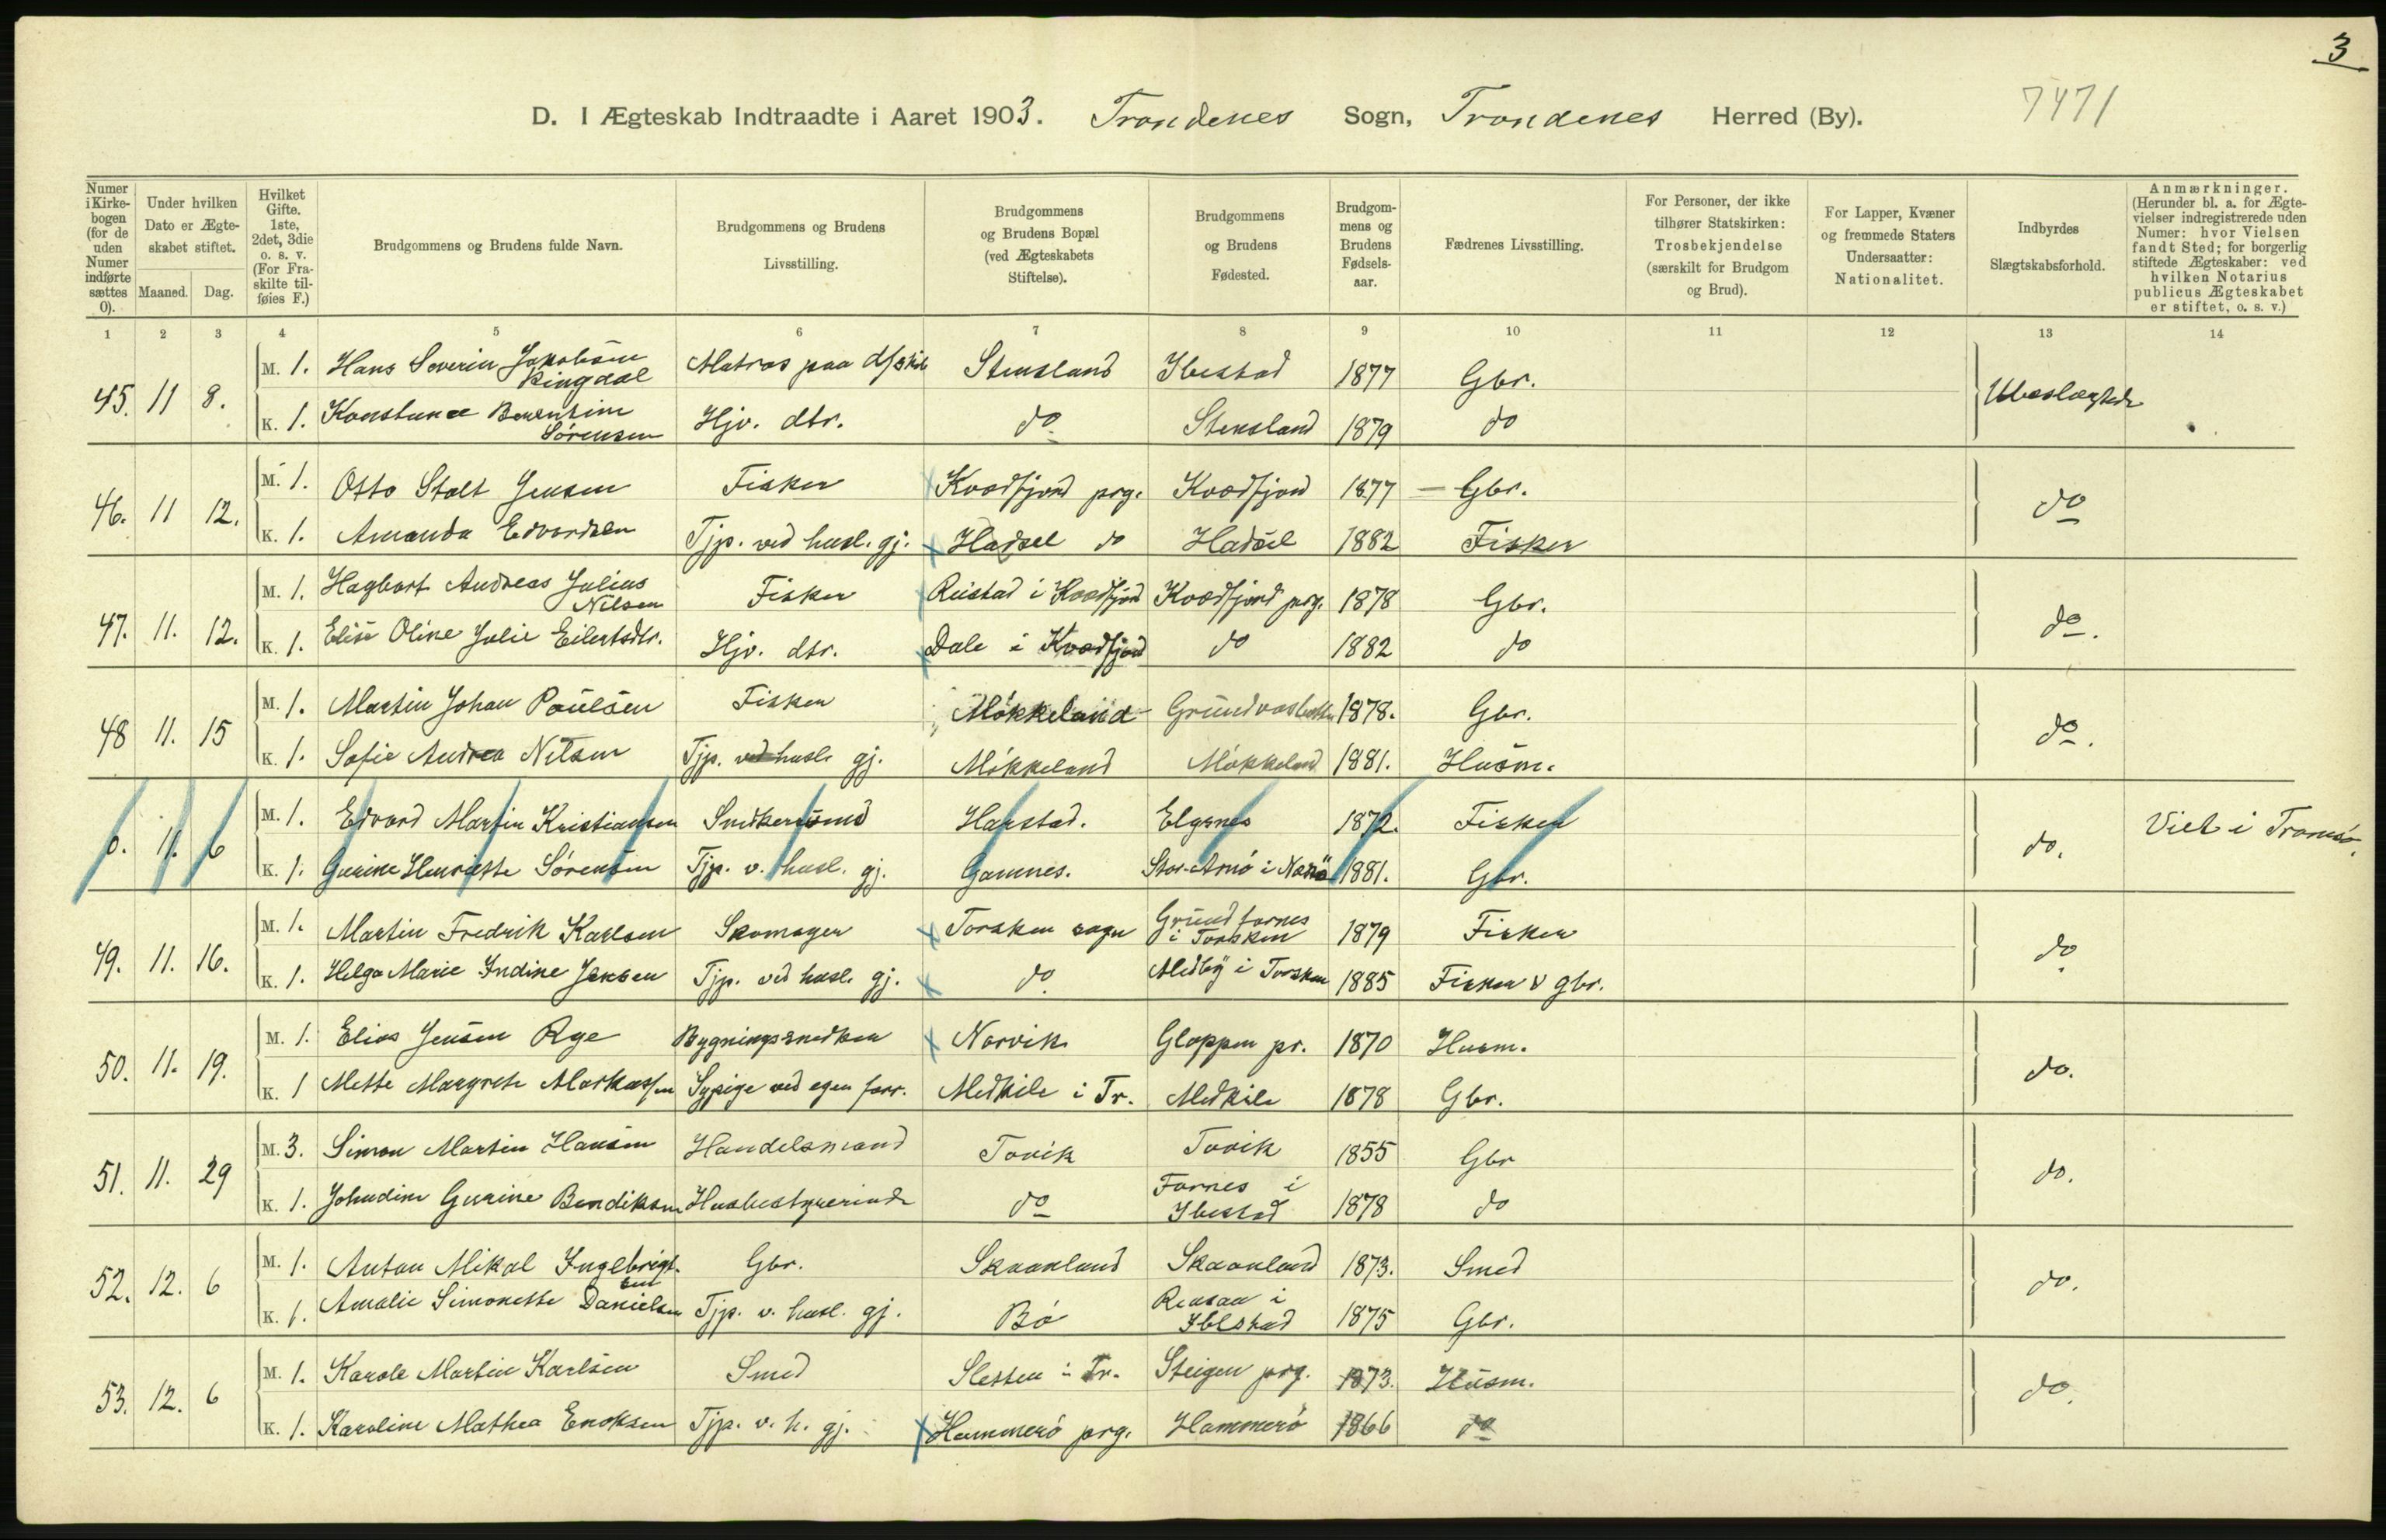 3
D. I Ægteskab Indtraadte i Aaret 1903. Trondenes Sogn, Trondenes Herred (By). 7471
Numer i Kirkebogen (for de uden Numer indførte sættes 0).
Under hvilken Dato er Ægteskabet stiftet.
Maaned. Dag.
Hvilket Gifte. 1ste, 2det, 3die o. s. v. (For Fraskilte tilføies F.)
Brudgommens og Brudens fulde Navn.
Brudgommens og Brudens Livsstilling.
Brudgommens og Brudens Bopæl (ved Ægteskabets Stiftelse).
Brudgommens og Brudens Fødested.
Brudgommens og Brudens Fødselsaar.
Fædrenes Livsstilling.
For Personer, der ikke tilhører Statskirken: Trosbekjendelse (særskilt for Brudgom og Brud).
For Lapper, Kvæner og fremmede Staters Undersaatter: Nationalitet.
Indbyrdes Slægtskabsforhold.
Anmærkninger. (Herunder bl. a. for Ægtevielser indregistrerede uden Numer: hvor Vielsen fandt Sted; for borgerlig stiftede Ægteskaber: ved hvilken Notarius publicus Ægteskabet er stiftet, o. s. v.)
1 2 3 4 5 6 7 8 9 10 11 12 13 14
45. 11 8. M. 1. Hans Severin Jakobsen Ringdal Matros paa Stensland Ibestad 1877 Gbr. Ubeslægtede
K. 1. Konstance Berentine Sørensen Hjv. dtr. do Stensland 1879 do
46. 11 12. M. 1. Otto Stolt Jensen Fisker Kvædfjord prg. Kvædfjord 1877 – Gbr. do
K. 1. Amanda Edvardsen Tjp. ved husl. gj. Hadsel do Hadsel 1882 Fisker
47. 11. 12. M. 1. Hagbart Andreas Julius Nilsen Fisker Rustad i Kvædfjord Kvædfjord prg. 1878 Gbr. do.
K. 1. Elise Oline Julie Eilertsdtr. Hjv. dtr. Dale i Kvædfjord do 1882 do
48 11. 15 M. 1. Martin Johan Poulsen Fisker Møkkeland Grundvasbotten 1878. Gbr. do.
K. 1. Sofie Andrea Nilsen Tjp. ved husl. gj. Møkkeland Møkkeland 1881. Husm.
0. 11. 6 M. 1. Edvard Martin Kristiansen Snedkersvend Harstad. Elgsnes 1872. Fisker do. Viet i Tromsø.
K. 1. Gurine Henriette Sørensen Tjp. v. husl. gj. Gamnes. 1881. Gbr.
49. 11. 16. M. 1. Martin Fredrik Karlsen Skomager Torsken sogn Grundfarnes i Torsken 1879 Fisker do.
K. 1. Helga Marie Indine Jensen Tjp. ved husl. gj. do. Medby i Torsken 1885 Fisker & gbr.
50. 11. 19. M. 1. Elias Jensen Rye Bygningssnedker Narvik Gloppen pr. 1870 Husm. do.
K. 1 Mette Margrete Markussen Sypige ved egen forr. Medkile i Tr. Medkile 1878 Gbr.
51. 11. 29 M. 3. Simon Martin Hansen Handelsmand Tovik Tovik 1855 Gbr do.
K. 1. Johndine Gurine Bendiksen Husbestyrerinde do Fornes i Ibestad 1878 do
52. 12. 6 M. 1. Anton Mikal Ingebrigtsen Gbr. Skaanland Skaanland 1873. Smed do.
K. 1. Amalie Simonette Danielsen Tjp. v. husl. gj. Bø Rensaa i Ibestad 1875 Gbr.
53. 12. 6 M. 1. Karole Martin Karlsen Smed Sletten i Tr. Steigen prg. 1873. Husm. do.
K. 1. Karoline Mathea Enoksen Tjp. v. h. gj. Hammerø prg. Hammerø 1866 do